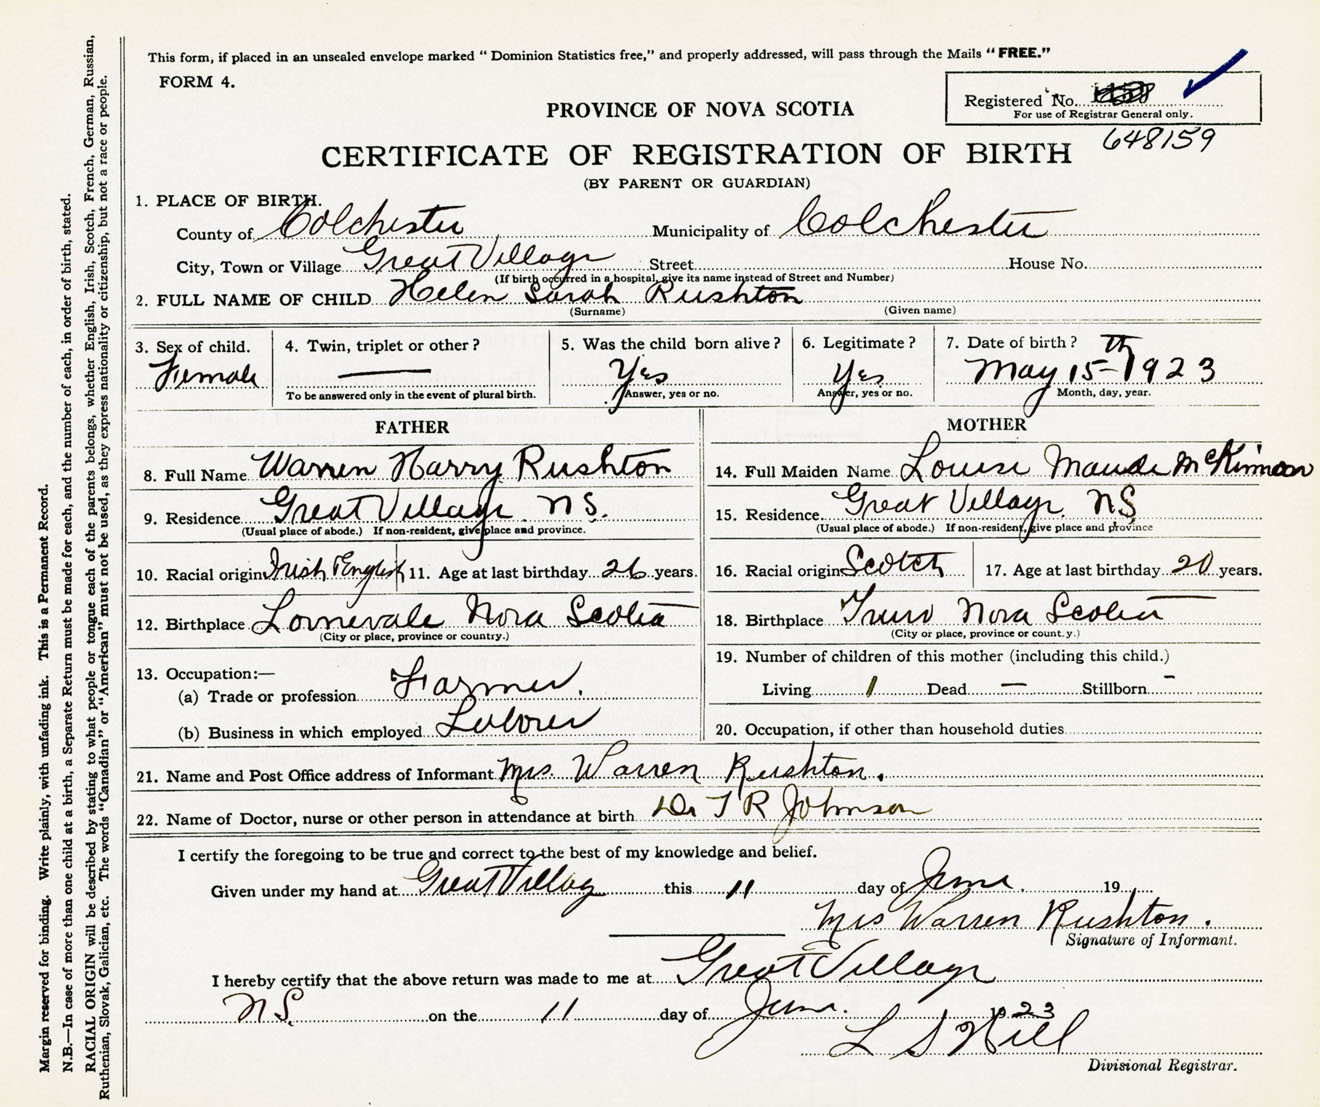 This form, if placed in an unsealed envelope marked " Dominion Statistics free," and properly addressed, will pass through the Mails " FREE."
FORM 4.
Registered No.
For use of Registrar General only.
648159
PROVINCE OF NOVA SCOTIA
CERTIFICATE OF REGISTRATION OF BIRTH
(BY PARENT OR GUARDIAN)
1. PLACE OF BIRTH.
County of Colchester Municipality of Colchester
City, Town or Village Great Village Street House No.
(If birth occurred in a hospital, give its name instead of Street and Number)
2. FULL NAME OF CHILD Helen Sarah Rushton
(Surname) (Given name)
3. Sex of child. 4. Twin, triplet or other? 5. Was the child born alive? 6. Legitimate? 7. Date of birth?
Female — Yes Yes May 15th 1923
To be answered only in the event of plural birth. Answer, yes or no. Answer, yes or no. Month, day, year.
FATHER
8. Full Name Warren Harry Rushton
9. Residence Great Village N.S.
(Usual place of abode.) If non-resident, give place and province.
10. Racial origin Irish English 11. Age at last birthday 26 years.
12. Birthplace Lornevale Nova Scotia
(City or place, province or country.)
13. Occupation:—
(a) Trade or profession Farmer.
(b) Business in which employed Laborer
MOTHER
14. Full Maiden Name Louise Maude McKinnon
15. Residence Great Village. NS
(Usual place of abode.) If non-resident, give place and province
16. Racial origin Scotch 17. Age at last birthday 20 years.
18. Birthplace Truro Nova Scotia
(City or place, province or count.y.)
19. Number of children of this mother (including this child.)
Living 1 Dead — Stillborn -
20. Occupation, if other than household duties
21. Name and Post Office address of Informant Mrs. Warren Rushton.
22. Name of Doctor, nurse or other person in attendance at birth Dr T R Johnson
I certify the foregoing to be true and correct to the best of my knowledge and belief.
Given under my hand at Great Village this 11 day of June. 19
Mrs Warren Rushton.
Signature of Informant.
I hereby certify that the above return was made to me at Great Village
N.S. on the 11 day of June. 1923
L S Hill
Divisional Registrar.
Margin reserved for binding. Write plainly, with unfading ink. This is a Permanent Record.
N.B.—In case of more than one child at a birth, a Separate Return must be made for each, and the number of each, in order of birth, stated.
RACIAL ORIGIN will be described by stating to what people or tongue each of the parents belongs, whether English, Irish, Scotch, French, German, Russian,
Ruthenian, Slovak, Galician, etc. The words "Canadian" or "American" must not be used, as they express nationality or citizenship, but not a race or people.